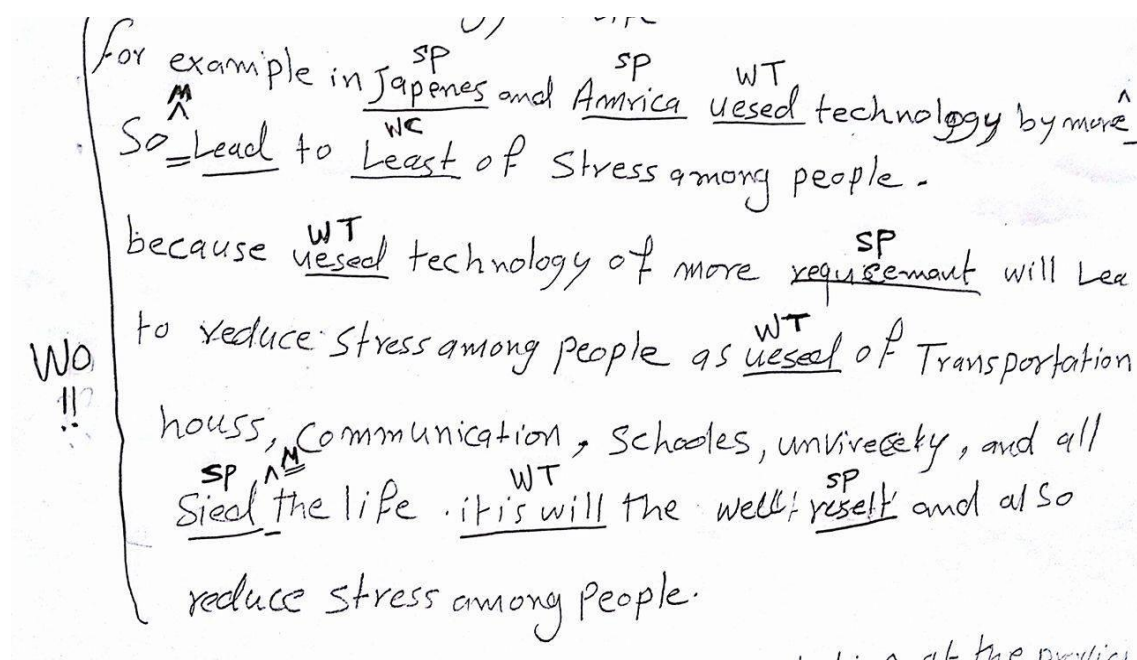 SP SP WT
for example in Japenes and Amrica uesed technology by more
M WC
So Lead to Least of Stress among people.
WT SP
because uesed technology of more will Lea
WT
to reduce stress among people as uesed of Transportation
WO
!!
houss, communication, schooles, and all
SP M WT SP
Sied the life. it is will the well reselt and also
reduce stress among people.
at the